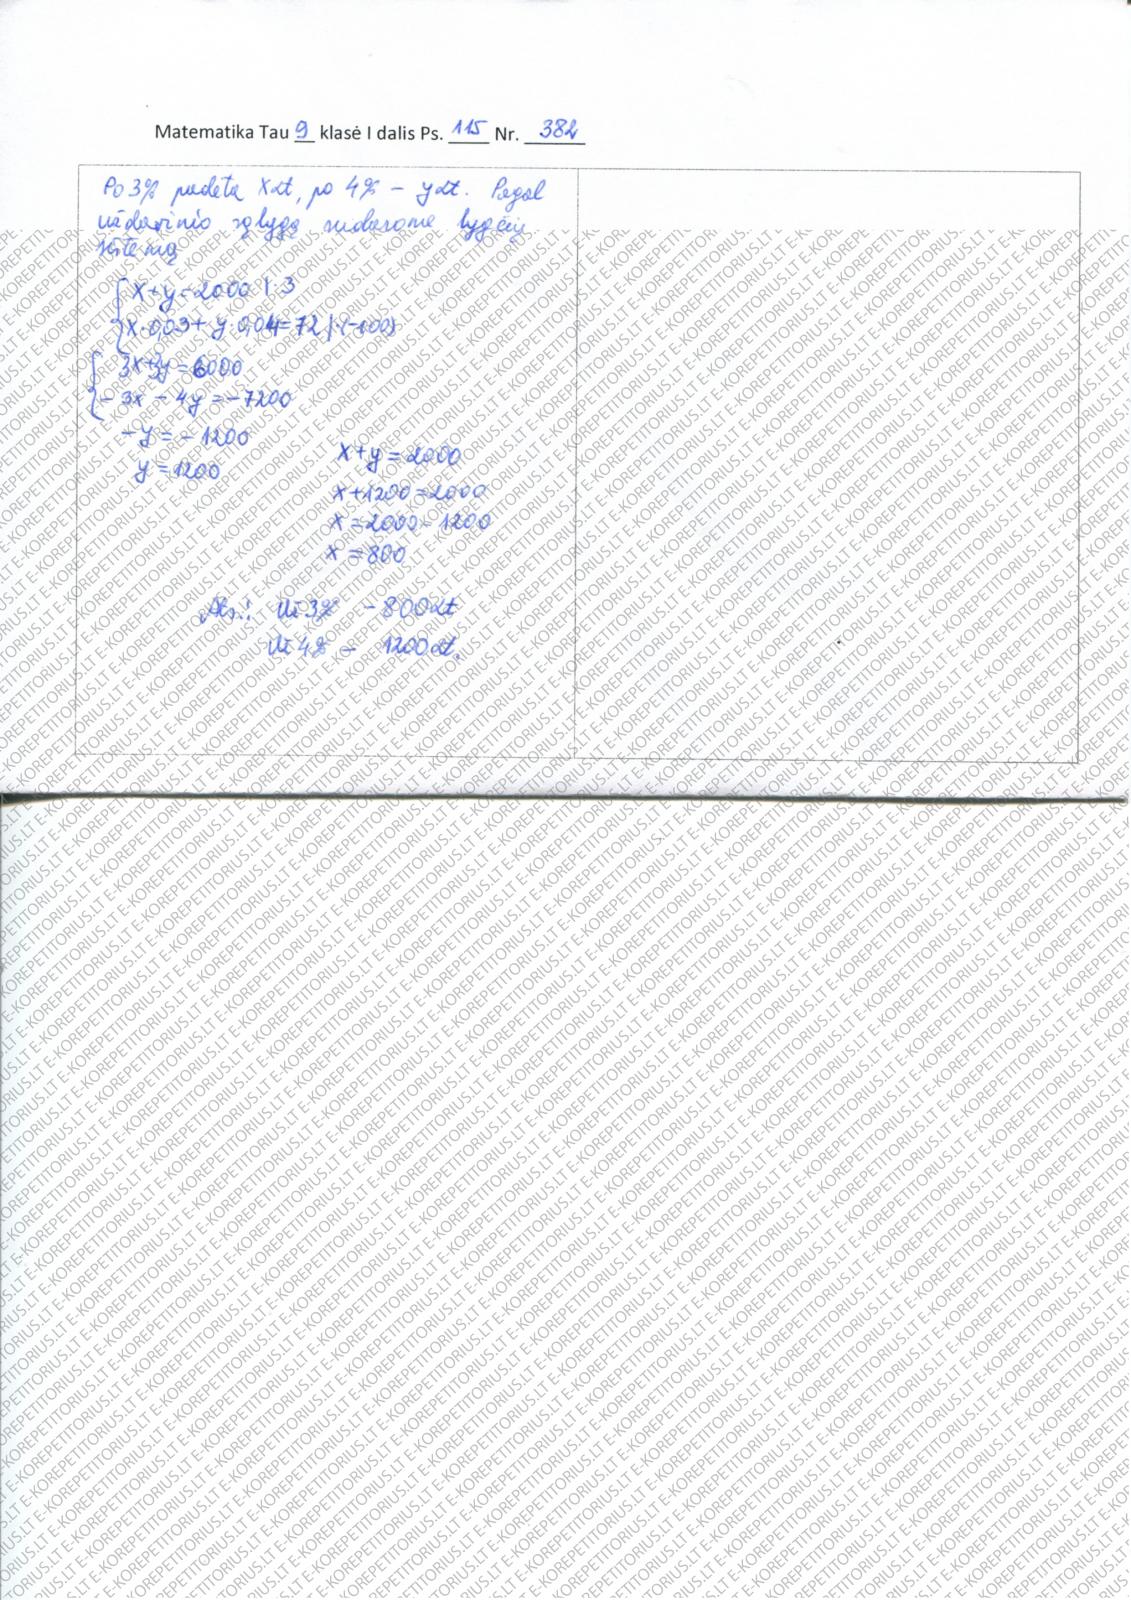 Matematika Tau 9 klasė I dalis Ps. 115 Nr. 382
Po 3% padėta x Lt, po 4% – y Lt. Pagal
uždavinio sąlygą sudarome lygčių
sistemą
x+y=2000 |·3
x·0,03+y·0,04=72 |·(-100)
3x+3y=6000
-3x-4y=-7200
-y=-1200
y=1200
x+y=2000
x+1200=2000
x=2000-1200
x=800
Ats.: Už 3% – 800Lt
Už 4% – 1200Lt.
E-KOREPETITORIUS.LT